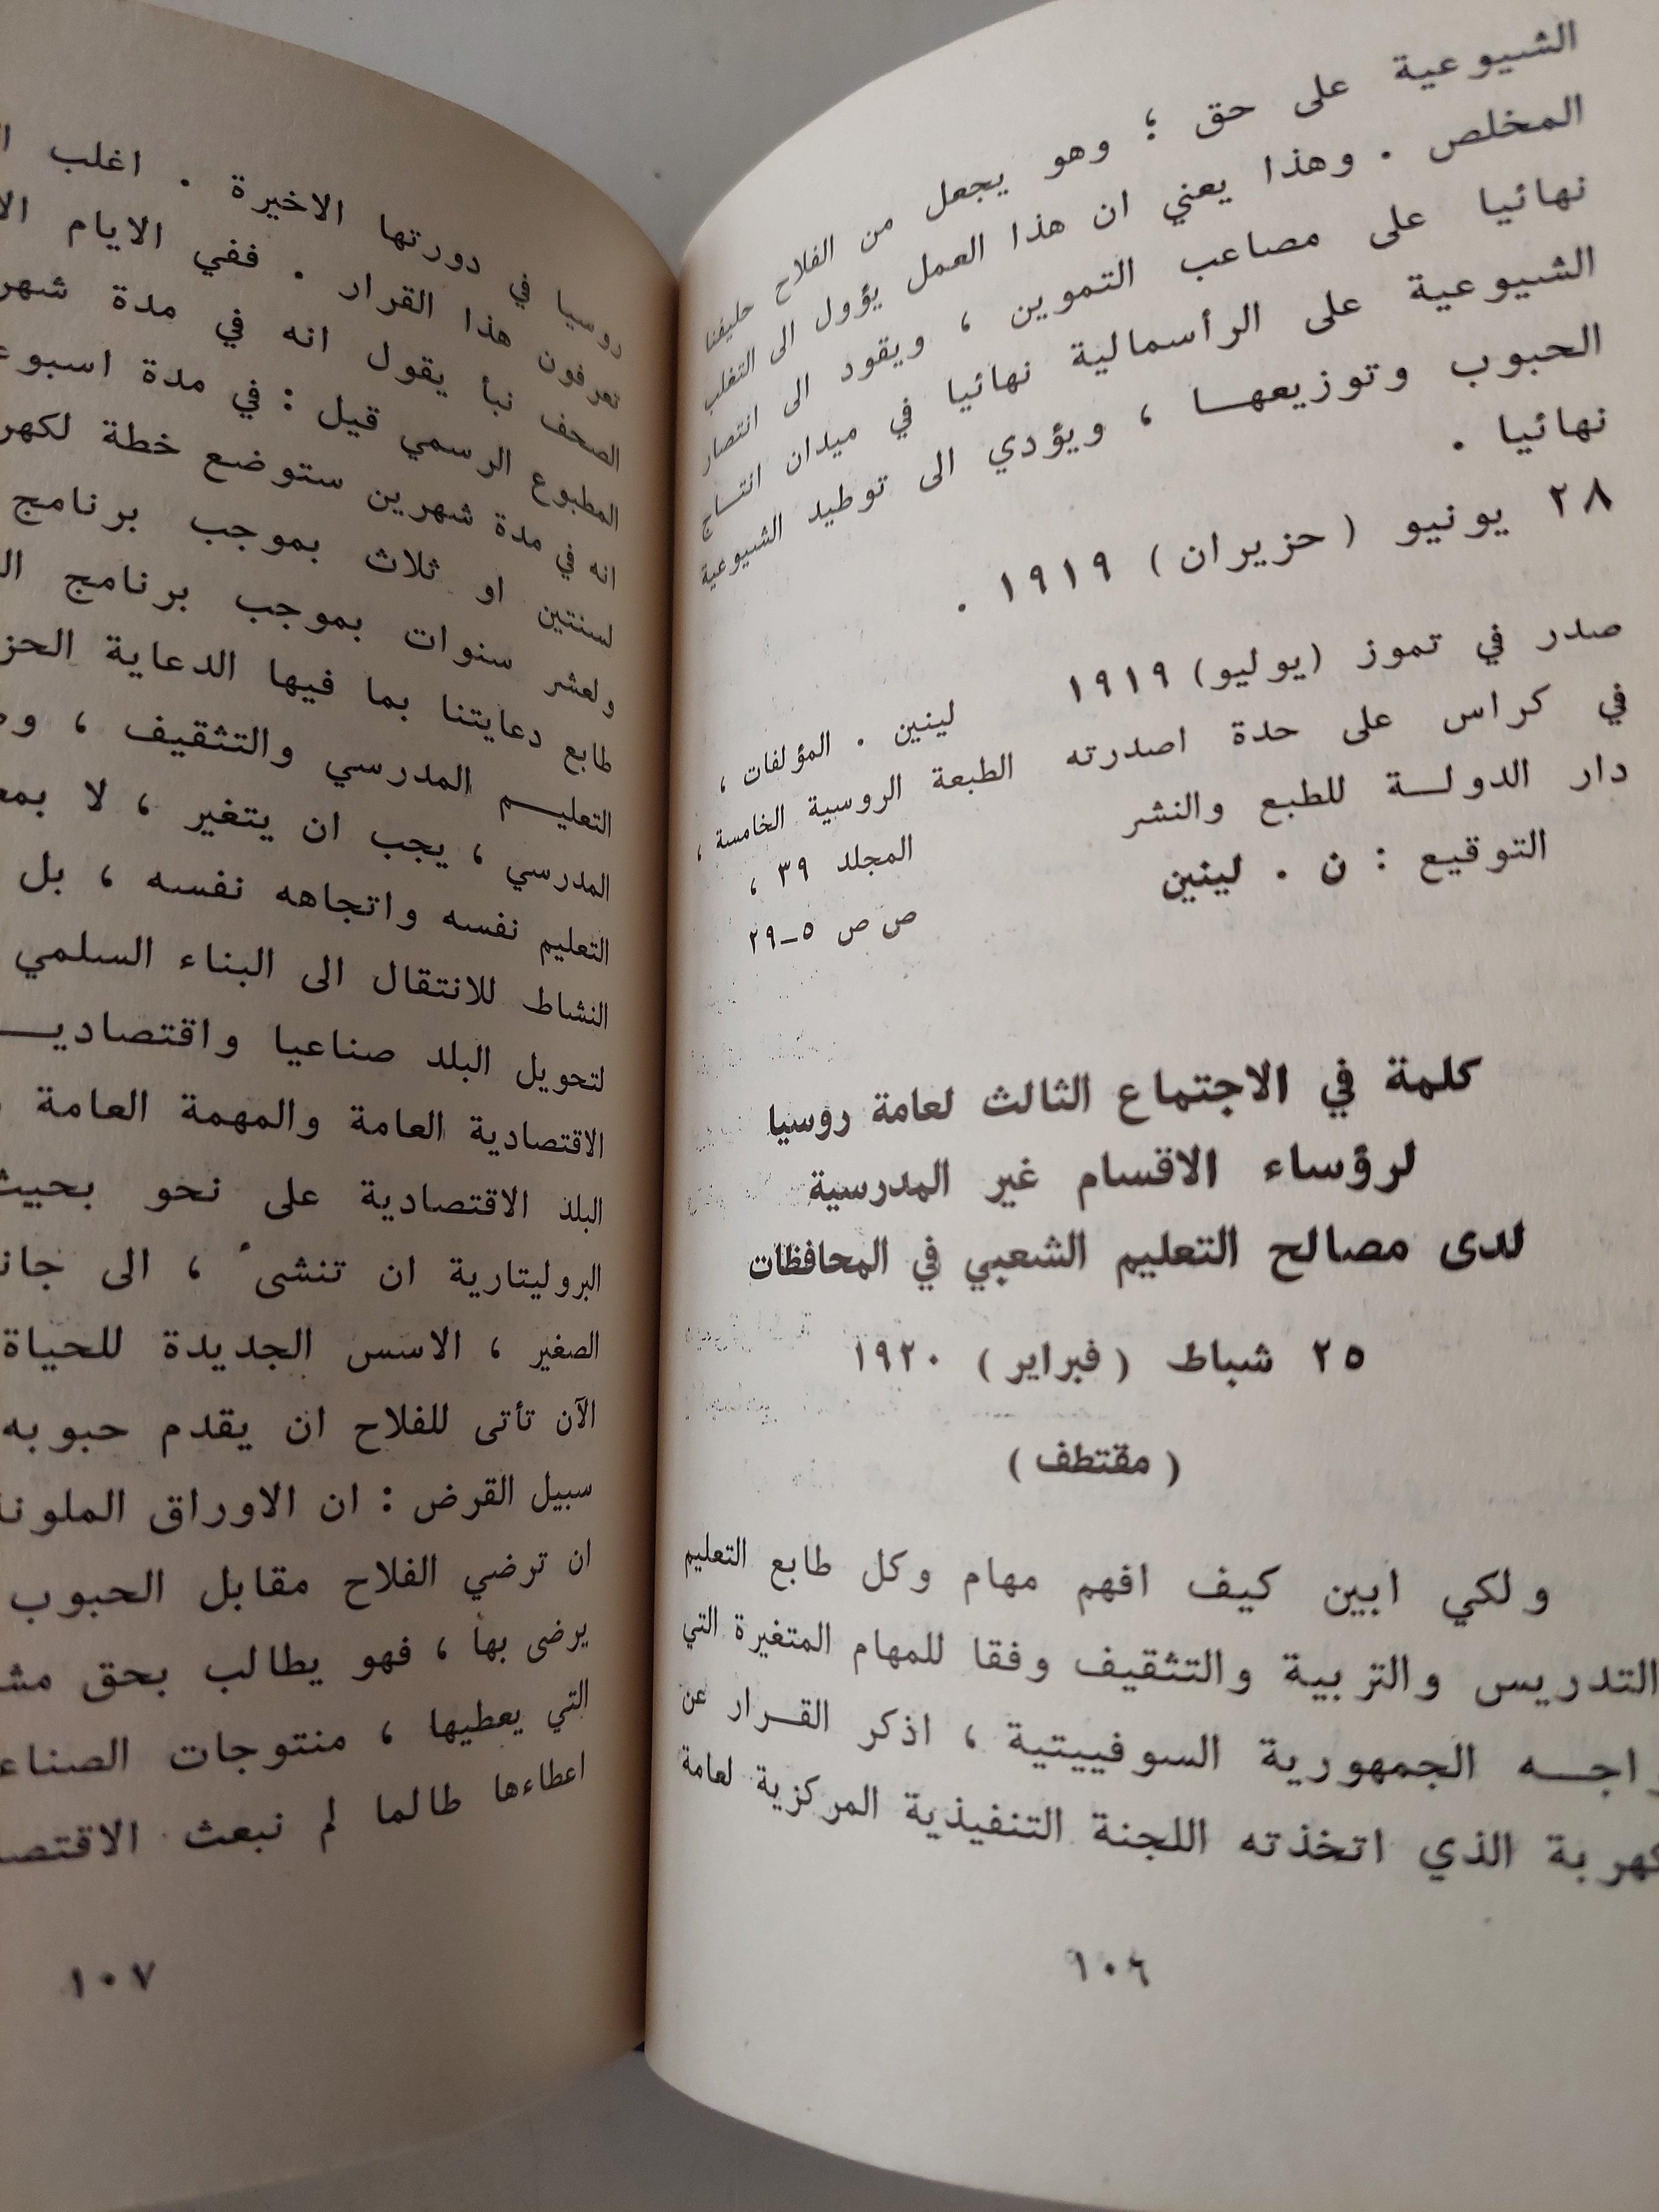 الشيوعية على حق ؛ وهو يجعل من الفلاح حليفنا
المخلص . وهذا يعني ان هذا العمل يؤول الى التغلب
نهائيا على مصاعب التموين ، ويقود الى انتصار
الشيوعية على الرأسمالية نهائيا في ميدان انتاج
الحبوب وتوزيعها ، ويؤدي الى توطيد الشيوعية
نهائيا .
٢٨ يونيو ( حزيران ) ١٩١٩ .
صدر في تموز (يوليو) ١٩١٩
في كراس على حدة اصدرته
دار الدولة للطبع والنشر
التوقيع : ن . لينين
لينين . المؤلفات ،
الطبعة الروسية الخامسة ،
المجلد ٣٩ ،
ص ص ٥–٢٩
كلمة في الاجتماع الثالث لعامة روسيا
لرؤساء الاقسام غير المدرسية
لدى مصالح التعليم الشعبي في المحافظات
٢٥ شباط ( فبراير ) ١٩٢٠
( مقتطف )
ولكي ابين كيف افهم مهام وكل طابع التعليم
التدريس والتربية والتثقيف وفقا للمهام المتغيرة التي
الجمهورية السوفييتية ، اذكر القرار عن
الذي اتخذته اللجنة التنفيذية المركزية لعامة
١٠٦
روسيا في دورتها الاخيرة . اغلب
تعرفون هذا القرار . ففي الايام
الصحف نبأ يقول انه في مدة
المطبوع الرسمي قيل : في مدة
انه في مدة شهرين ستوضع خطة
لسنتين او ثلاث بموجب برنامج
ولعشر سنوات بموجب برنامج
طابع دعايتنا بما فيها الدعاية
التعليم المدرسي والتثقيف ،
المدرسي ، يجب ان يتغير ، لا
التعليم نفسه واتجاهه نفسه ، بل
النشاط للانتقال الى البناء السلمي
لتحويل البلد صناعيا
الاقتصادية العامة والمهمة العامة
البلد الاقتصادية على نحو بحيث
البروليتارية ان تنشىء ، الى
الصغير ، الاسس الجديدة للحياة
الآن تأتى للفلاح ان يقدم حبوبه
سبيل القرض : ان الاوراق
ان ترضي الفلاح مقابل الحبوب
يرضى بها ، فهو يطالب بحق
التي يعطيها ، منتوجات
اعطاءها طالما لم نبعث
١٠٧